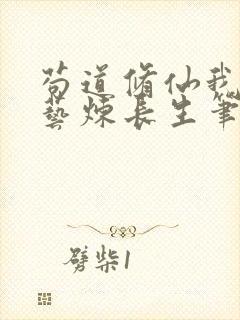 苟道脩仙我
藝煉長生筆
劈柴1